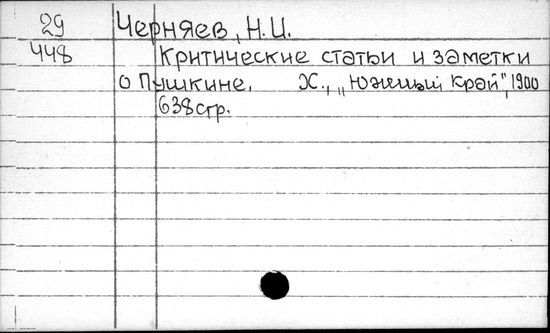 29 Черняев, Н.И.
448 Критические статьи и заметки
о Пушкине. Х., „Южный Край", 1900
638 стр.